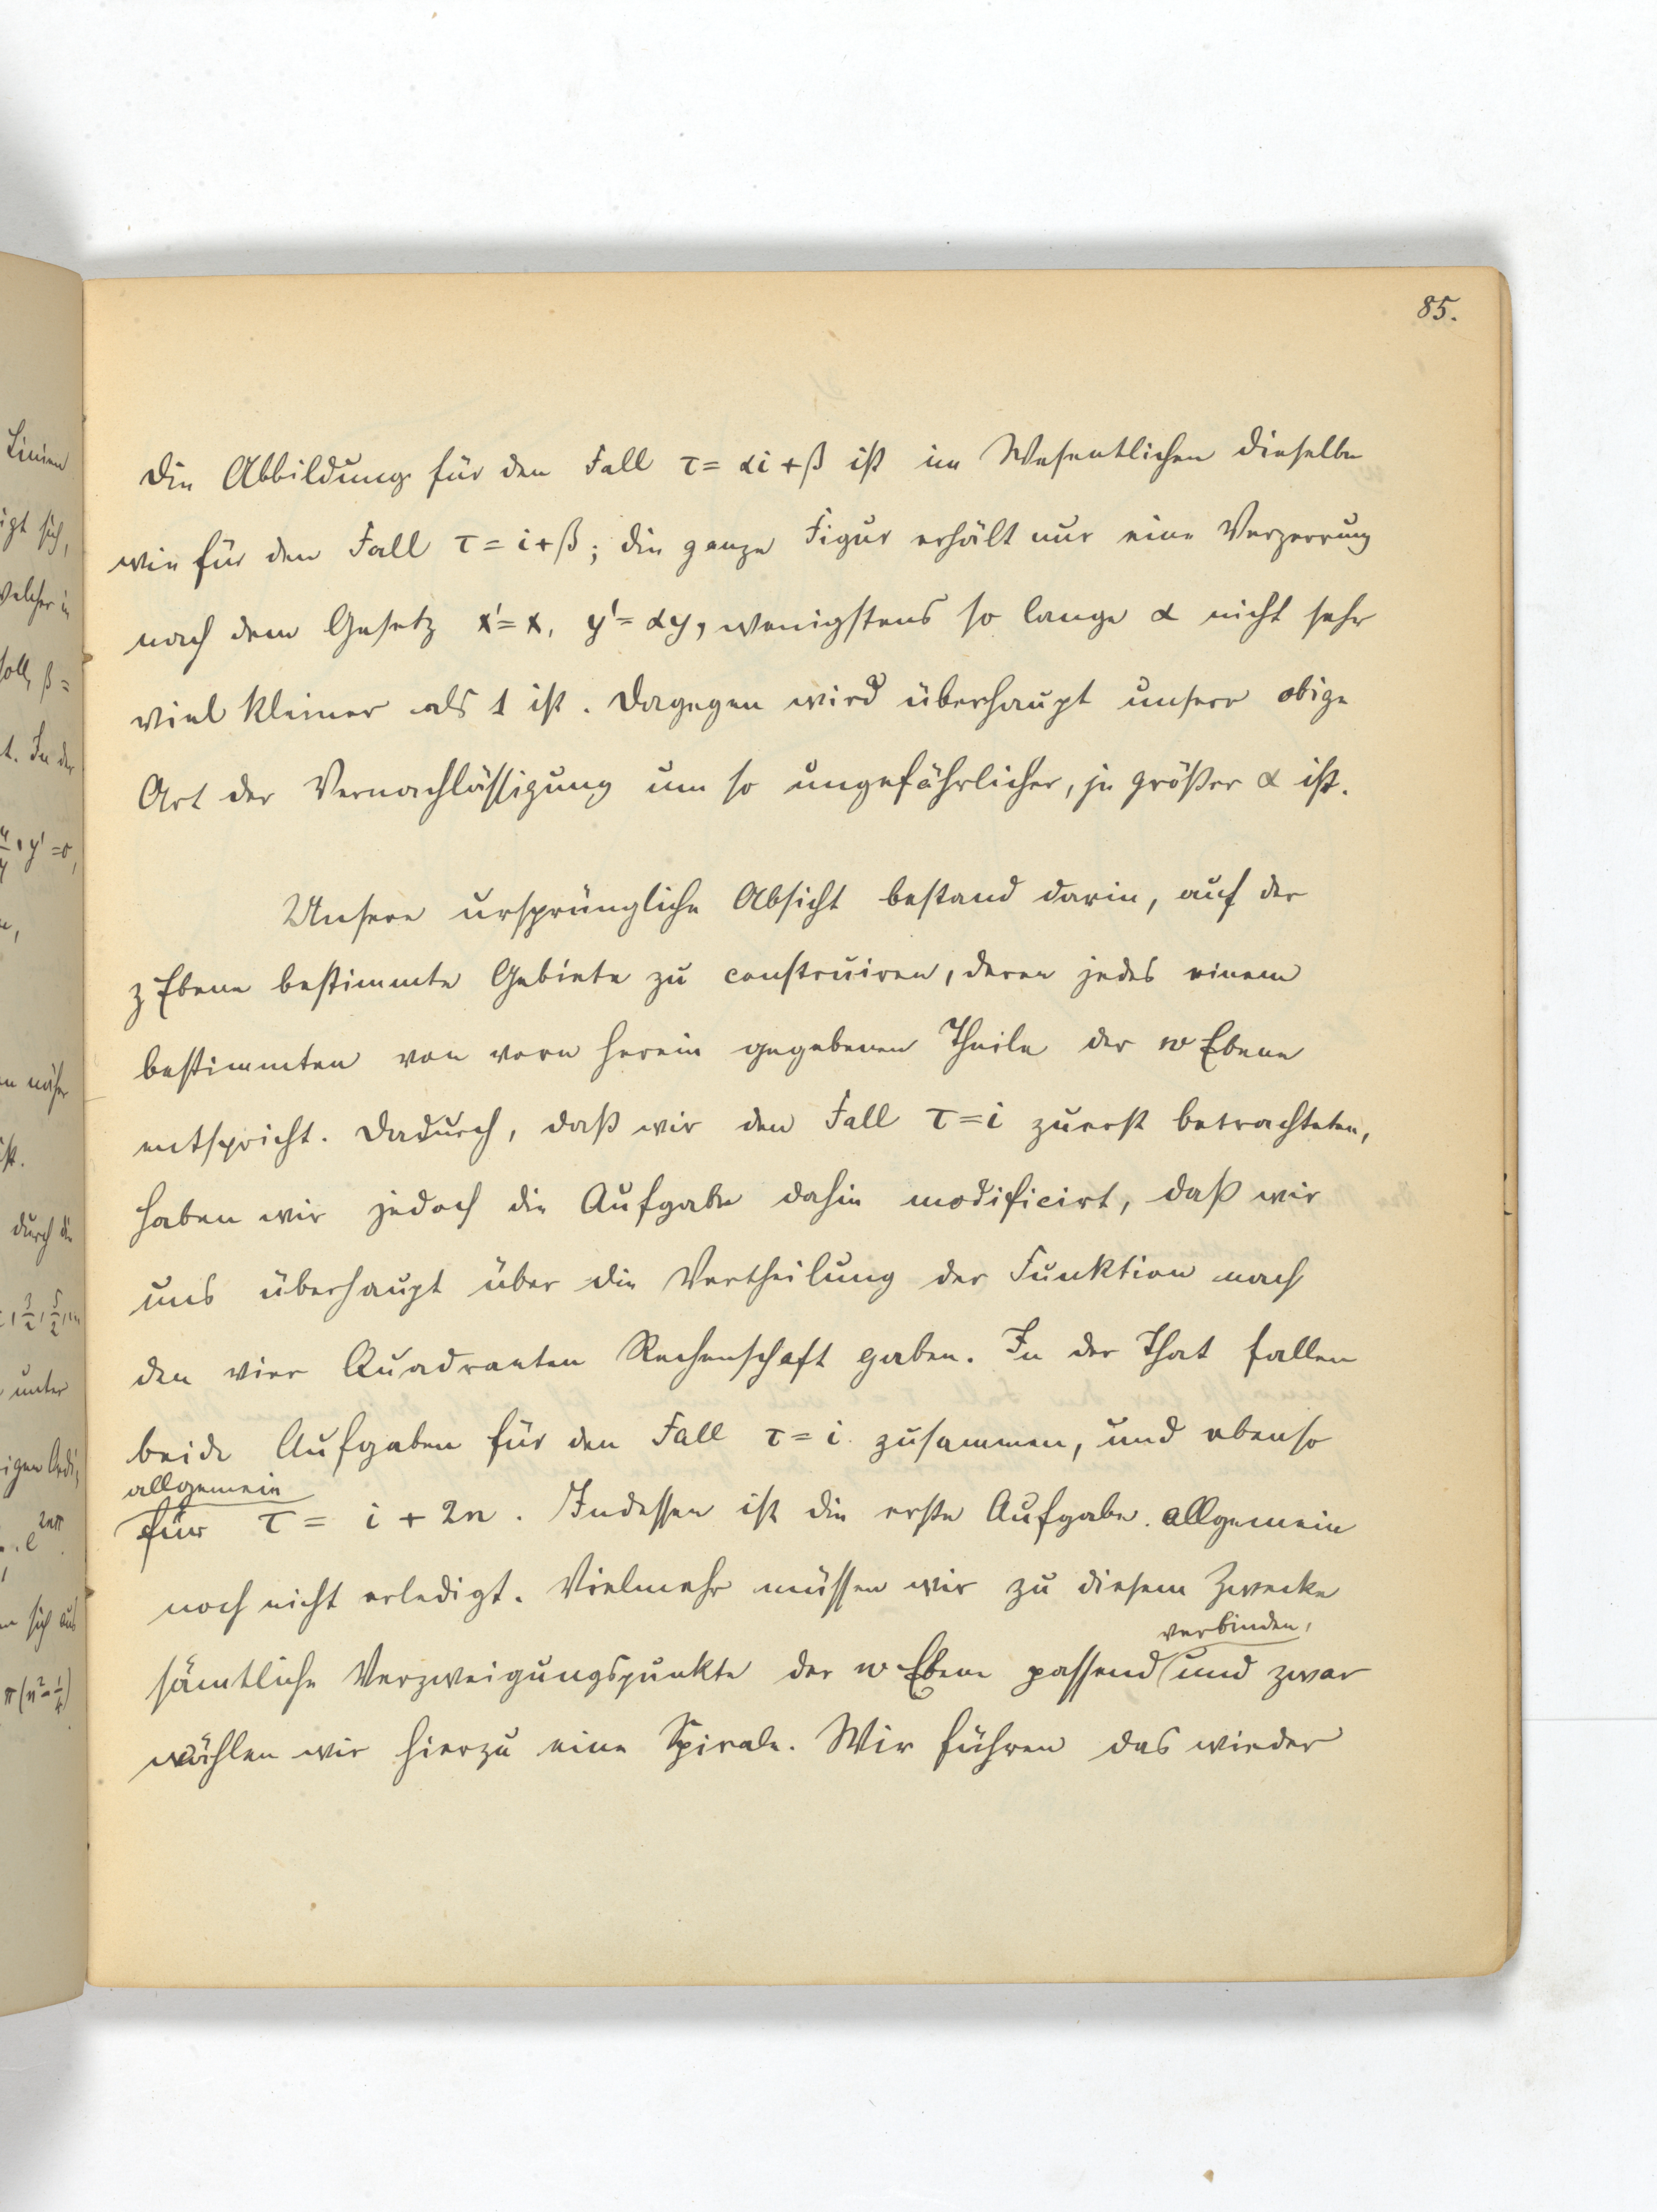 85.
Die Abbildung für den Fall τ = αi + β ist im Wesentlichen dieselbe
wie für den Fall τ = i + β; die ganze Figur erhält nur eine Verzerrung
nach dem Gesetz x' = x, y' = αy, wenigstens so lange α nicht sehr
viel kleiner als 1 ist. Dagegen wird überhaupt unsere obige
Art der Vernachlässigung um so ungefährlicher, je größer α ist.
Unsere ursprüngliche Absicht bestand darin, auf der
z Ebene bestimmte Gebiete zu construiren, deren jedes einem
bestimmten von vorn herein gegebenen Theile der w Ebene
entspricht. Dadurch, daß wir den Fall τ = i zuerst betrachteten,
haben wir jedoch die Aufgabe dahin modificirt, daß wir
uns überhaupt über die Vertheilung der Funktion nach
den vier Quadranten Rechenschaft gaben. In der That fallen
beide Aufgaben für den Fall τ = i zusammen, und ebenso
allgemein
für τ = i + 2n. Indessen ist die erste Aufgabe allgemein
noch nicht erledigt. Vielmehr müssen wir zu diesem Zwecke
verbinden,
sämtliche Verzweigungspunkte der w Ebene passend und zwar
wählen wir hierzu eine Spirale. Wir führen das wieder
Linien
igt sich,
welcher in
soll, β =
t. In der
n näher
ist.
durch die
unter
sich aus